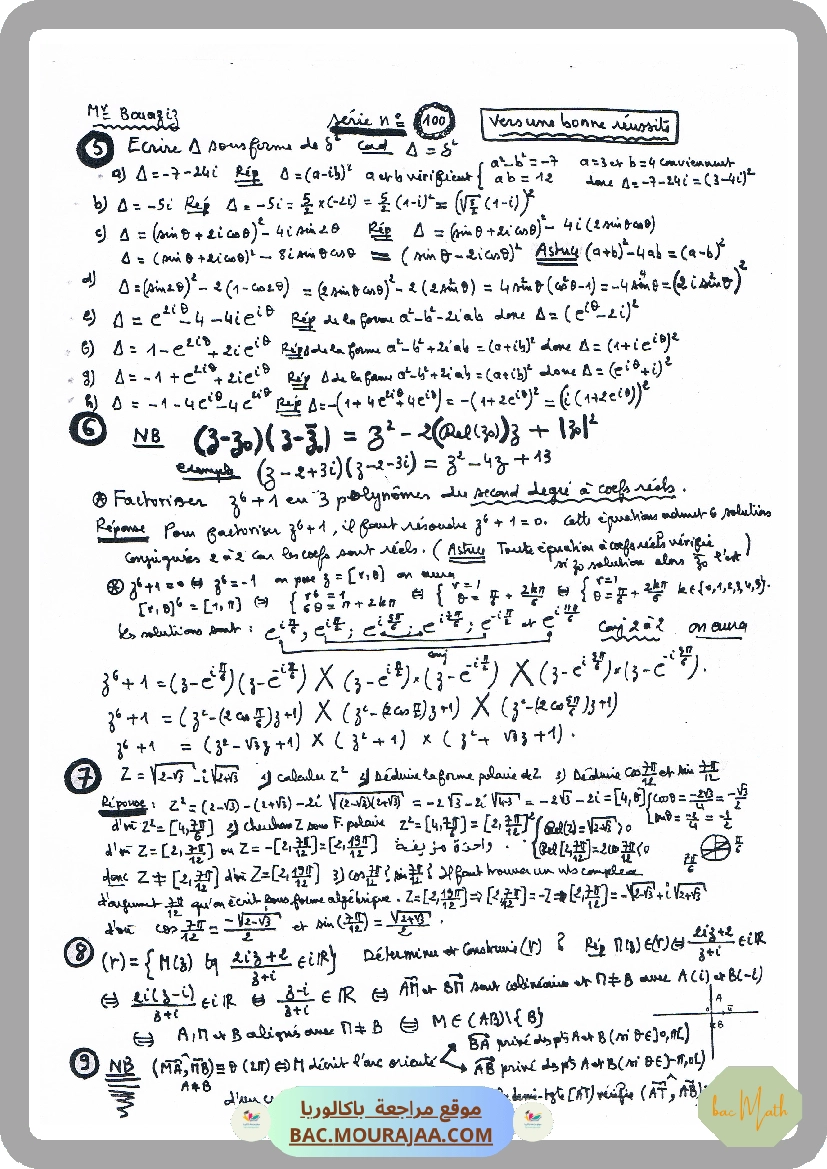 Mr Bouazizi série n° 100 Vers une bonne réussite
5 Ecrire Δ sous forme de δ² Cad Δ = δ²
a) Δ = -7-24i Rép Δ = (a-ib)² a et b vérifient { a²-b² = -7 a=3 et b=4 conviennent
ab = 12 donc Δ = -7-24i = (3-4i)²
b) Δ = -5i Rép Δ = -5i = 5/2 × (-2i) = 5/2 (1-i)² = (√5/2 (1-i))²
c) Δ = (sinθ + 2i cosθ)² - 4i sin2θ Rép Δ = (sinθ + 2i cosθ)² - 4i (2 sinθ cosθ)
Δ = (sinθ + 2i cosθ)² - 8i sinθ cosθ = (sinθ - 2i cosθ)² Astuce (a+b)² - 4ab = (a-b)²
d) Δ = (sin2θ)² - 2(1-cos2θ) = (2 sinθ cosθ)² - 2(2 sin²θ) = 4 sin²θ (cos²θ - 1) = -4 sin⁴θ = (2i sin²θ)²
e) Δ = e^{2iθ} - 4 - 4i e^{iθ} Rép de la forme a²-b²-2iab donc Δ = (e^{iθ} - 2i)²
f) Δ = 1 - e^{2iθ} + 2i e^{iθ} Rép Δ de la forme a²-b²+2iab = (a+ib)² donc Δ = (1 + i e^{iθ})²
g) Δ = -1 + e^{2iθ} + 2i e^{iθ} Rép Δ de la forme a²-b²+2iab = (a+ib)² donc Δ = (e^{iθ} + i)²
h) Δ = -1 - 4e^{iθ} - 4e^{2iθ} Rép Δ = -(1 + 4e^{iθ} + 4e^{2iθ}) = -(1 + 2e^{iθ})² = (i(1 + 2e^{iθ}))²
6 NB (z - z₀)(z - z̄₀) = z² - 2(Rel(z₀))z + |z₀|²
exemple (z - 2 + 3i)(z - 2 - 3i) = z² - 4z + 13
⊛ Factoriser z⁶ + 1 en 3 polynômes du second degré à coefs réels.
Réponse Pour factoriser z⁶+1, il faut résoudre z⁶+1 = 0. Cette équation admet 6 solutions
conjuguées 2 à 2 car les coefs sont réels. (Astuce Toute équation à coefs réels vérifie
si z₀ solution alors z̄₀ l'est)
⊛ z⁶+1 = 0 ⇔ z⁶ = -1 on pose z = [r, θ] on aura
[r, θ]⁶ = [1, π] ⇔ { r⁶ = 1 6θ = π + 2kπ ⇔ { r = 1 θ = π/6 + 2kπ/6 ⇔ { r = 1 θ = π/6 + 2kπ/6 k∈{0,1,2,3,4,5}.
Les solutions sont : e^{iπ/6}, e^{iπ/2}; e^{i5π/6}; e^{i7π/6}; e^{-iπ/2} et e^{i11π/6} Conj 2 à 2 on aura
conj
z⁶ + 1 = (z - e^{iπ/6})(z - e^{-iπ/6}) × (z - e^{iπ/2}) × (z - e^{-iπ/2}) × (z - e^{i5π/6}) × (z - e^{-i5π/6}).
z⁶ + 1 = (z² - (2cos π/6)z + 1) × (z² - (2cos π/2)z + 1) × (z² - (2cos 5π/6)z + 1)
z⁶ + 1 = (z² - √3z + 1) × (z² + 1) × (z² + √3z + 1).
7 Z = √(2-√3) - i√(2+√3) 1) calculer Z² 2) Déduire la forme polaire de Z 3) Déduire cos 7π/12 et sin 7π/12
Réponse : Z² = (2-√3) - (2+√3) - 2i √((2-√3)(2+√3)) = -2√3 - 2i √(4-3) = -2√3 - 2i = [4, θ] { cosθ = -2√3/4 = -√3/2
sinθ = -2/4 = -1/2
d'où Z² = [4, 7π/6] 2) Cherchons Z sous F. polaire Z² = [4, 7π/6] = [2, 7π/12]² { Rel(Z) = √(2-√3) > 0
d'où Z = [2, 7π/12] ou Z = -[2, 7π/12] = [2, 19π/12] واحدة مزيفة . { Rel[2, 7π/12] = 2cos 7π/12 < 0
7π/6 π/6
donc Z ≠ [2, 7π/12] d'où Z = [2, 19π/12] 3) cos 7π/12 ? sin 7π/12 ? Il faut trouver un nbs complexe
d'argument 7π/12 qu'on écrit sous forme algébrique. Z = [2, 19π/12] ⇒ [2, 7π/12] = -Z ⇒ [2, 7π/12] = -√(2-√3) + i√(2+√3)
d'où cos 7π/12 = -√(2-√3)/2 et sin(7π/12) = √(2+√3)/2 .
8 (Γ) = { M(z) tq (2iz+2)/(z+i) ∈ iℝ } Déterminer et Construire (Γ) ? Rép M(z)∈(Γ) ⇔ (2iz+2)/(z+i) ∈ iℝ
⇔ 2i(z-i)/(z+i) ∈ iℝ ⇔ (z-i)/(z+i) ∈ ℝ ⇔ AM et BM sont colinéaires et M≠B avec A(i) et B(-i)
⇔ A, M et B alignés avec M≠B ⇔ M ∈ (AB)\{B}
A
B
9 NB (MA, MB) ≡ θ (2π) ⇔ M décrit l'arc orienté BA privé des pts A et B (si θ∈]0,π[)
A≠B AB privé des pts A et B (si θ∈]-π,0[)
d'un demi-tgte [AT) vérifie (AT, AB)
موقع مراجعة باكالوريا
BAC.MOURAJAA.COM
bac Math